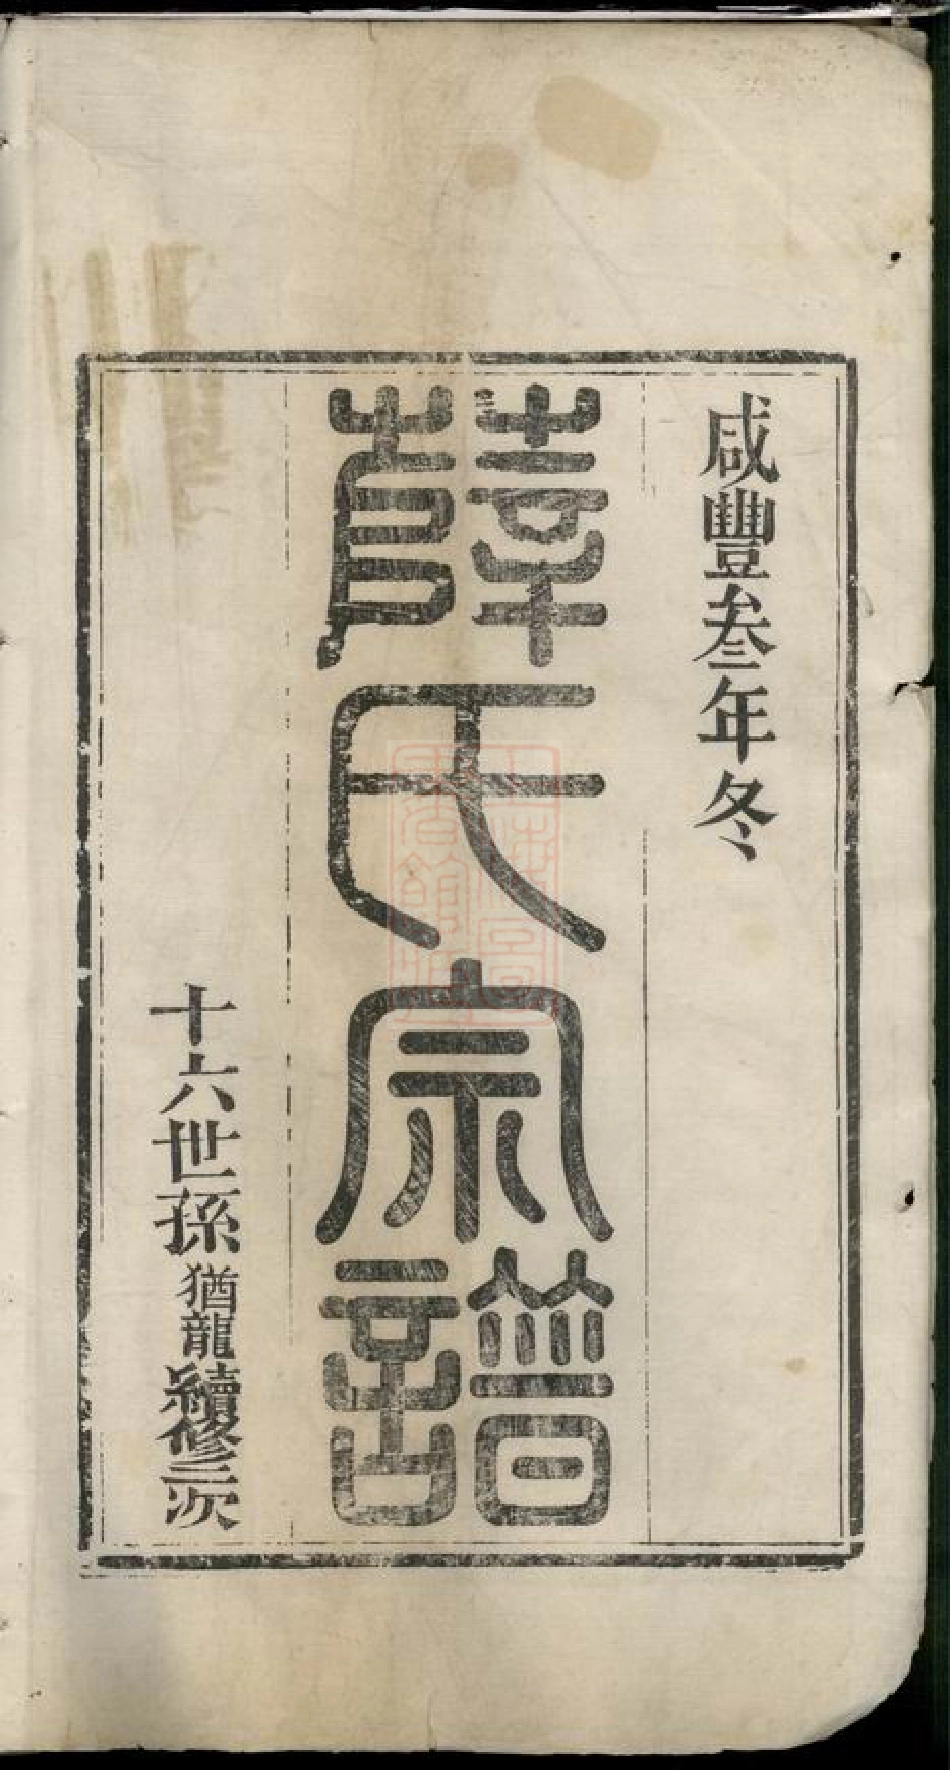 咸豐叁年冬
薛氏宗譜
十六世孫猶龍續修三次